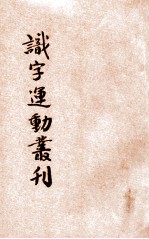 識字運動叢刊